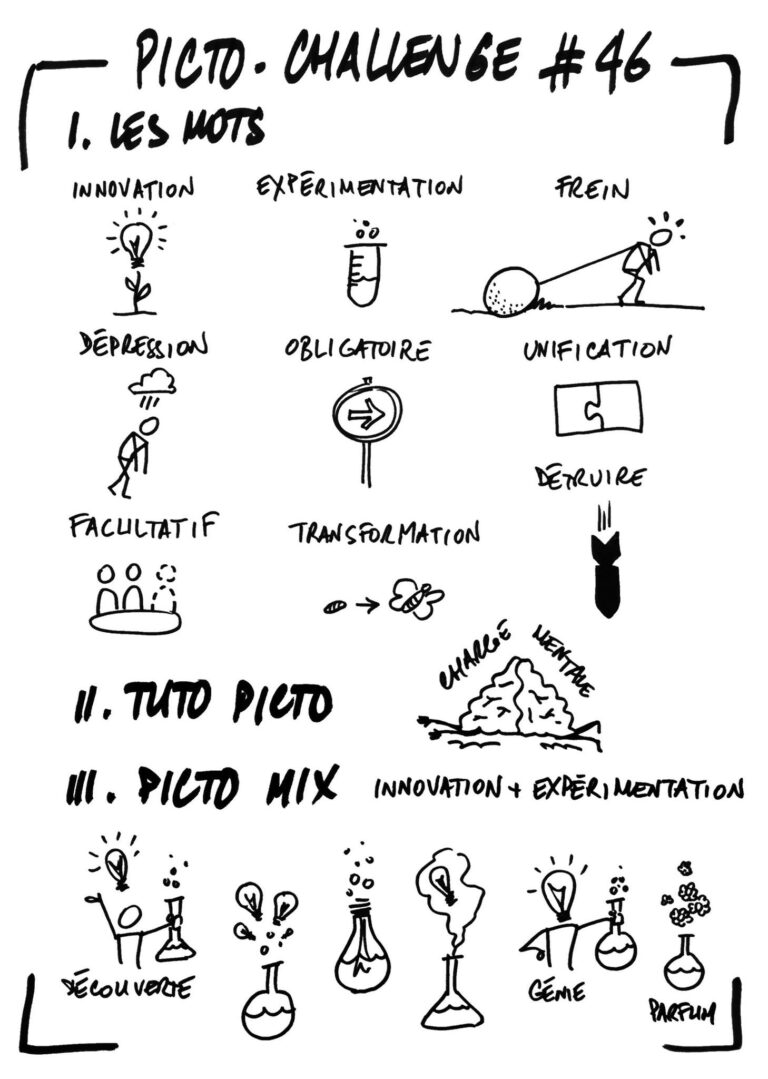 PICTO. CHALLENGE #46
I. LES MOTS
INNOVATION
EXPÉRIMENTATION
FREIN
DÉPRESSION
OBLIGATOIRE
UNIFICATION
DÉTRUIRE
FACULTATIF
TRANSFORMATION
CHARGE MENTALE
II. TUTO PICTO
III. PICTO MIX INNOVATION + EXPÉRIMENTATION
DÉCOUVERTE
GÉNIE
PARFUM